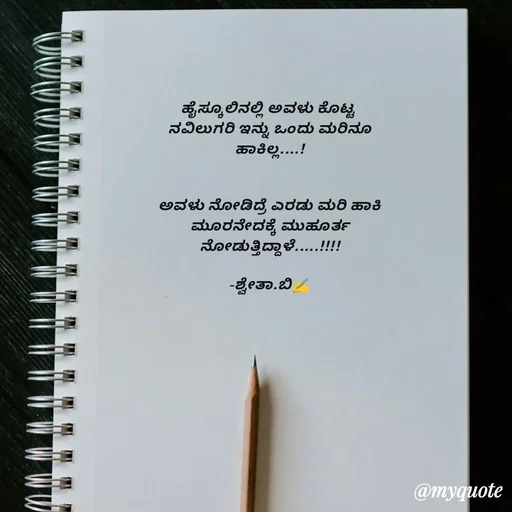 ಹೈಸ್ಕೂಲಿನಲ್ಲಿ ಅವಳು ಕೊಟ್ಟ
ನವಿಲುಗರಿ ಇನ್ನು ಒಂದು ಮರಿನೂ
ಹಾಕಿಲ್ಲ....!
ಅವಳು ನೋಡಿದ್ರೆ ಎರಡು ಮರಿ ಹಾಕಿ
ಮೂರನೇದಕ್ಕೆ ಮುಹೂರ್ತ
ನೋಡುತ್ತಿದ್ದಾಳೆ.....!!!!
-ಶ್ವೇತಾ.ಬಿ✍️
@myquote